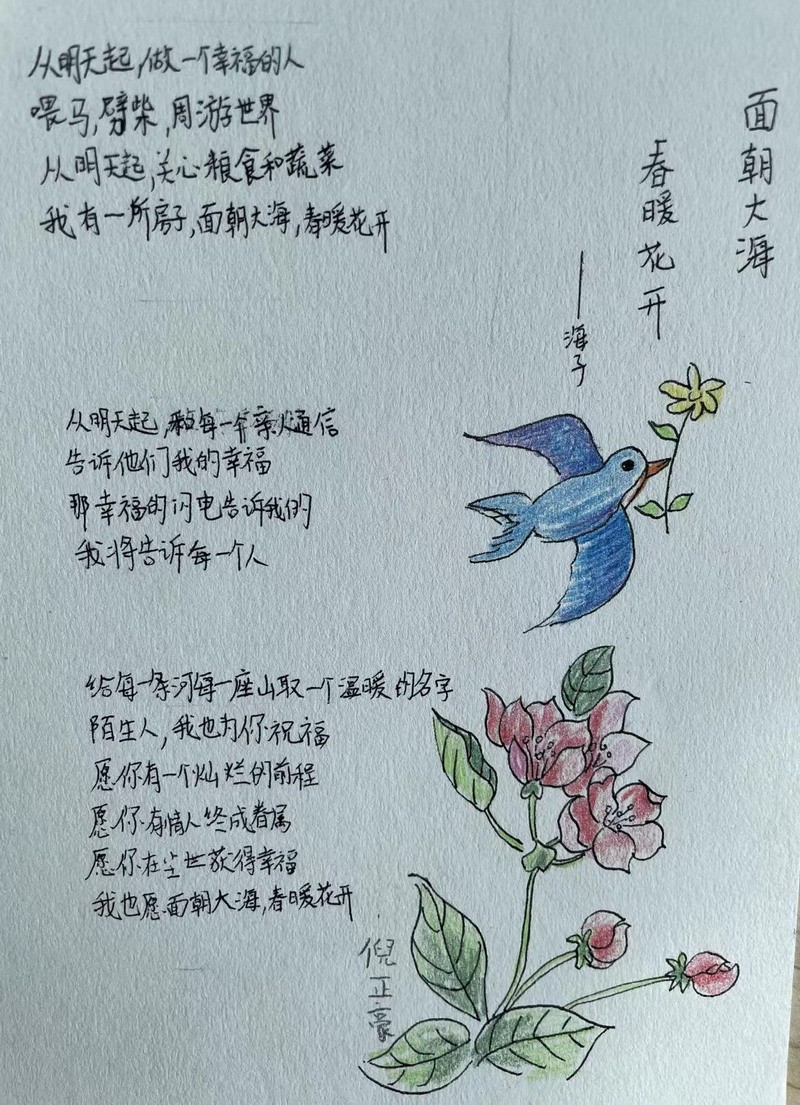 面朝大海
春暖花开
——海子
从明天起,做一个幸福的人
喂马,劈柴,周游世界
从明天起,关心粮食和蔬菜
我有一所房子,面朝大海,春暖花开
从明天起,和每一个亲人通信
告诉他们我的幸福
那幸福的闪电告诉我的
我将告诉每一个人
给每一条河每一座山取一个温暖的名字
陌生人,我也为你祝福
愿你有一个灿烂的前程
愿你有情人终成眷属
愿你在尘世获得幸福
我也愿面朝大海,春暖花开
倪正豪